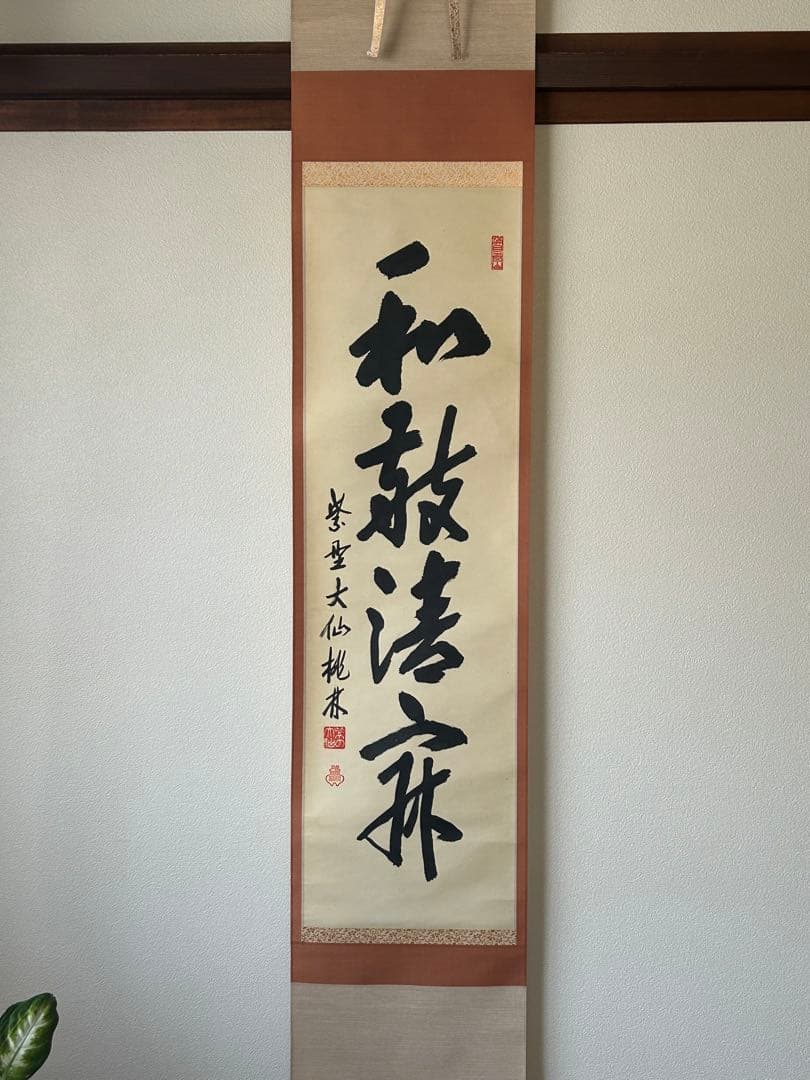 和敬清寂
紫野大仙桃林